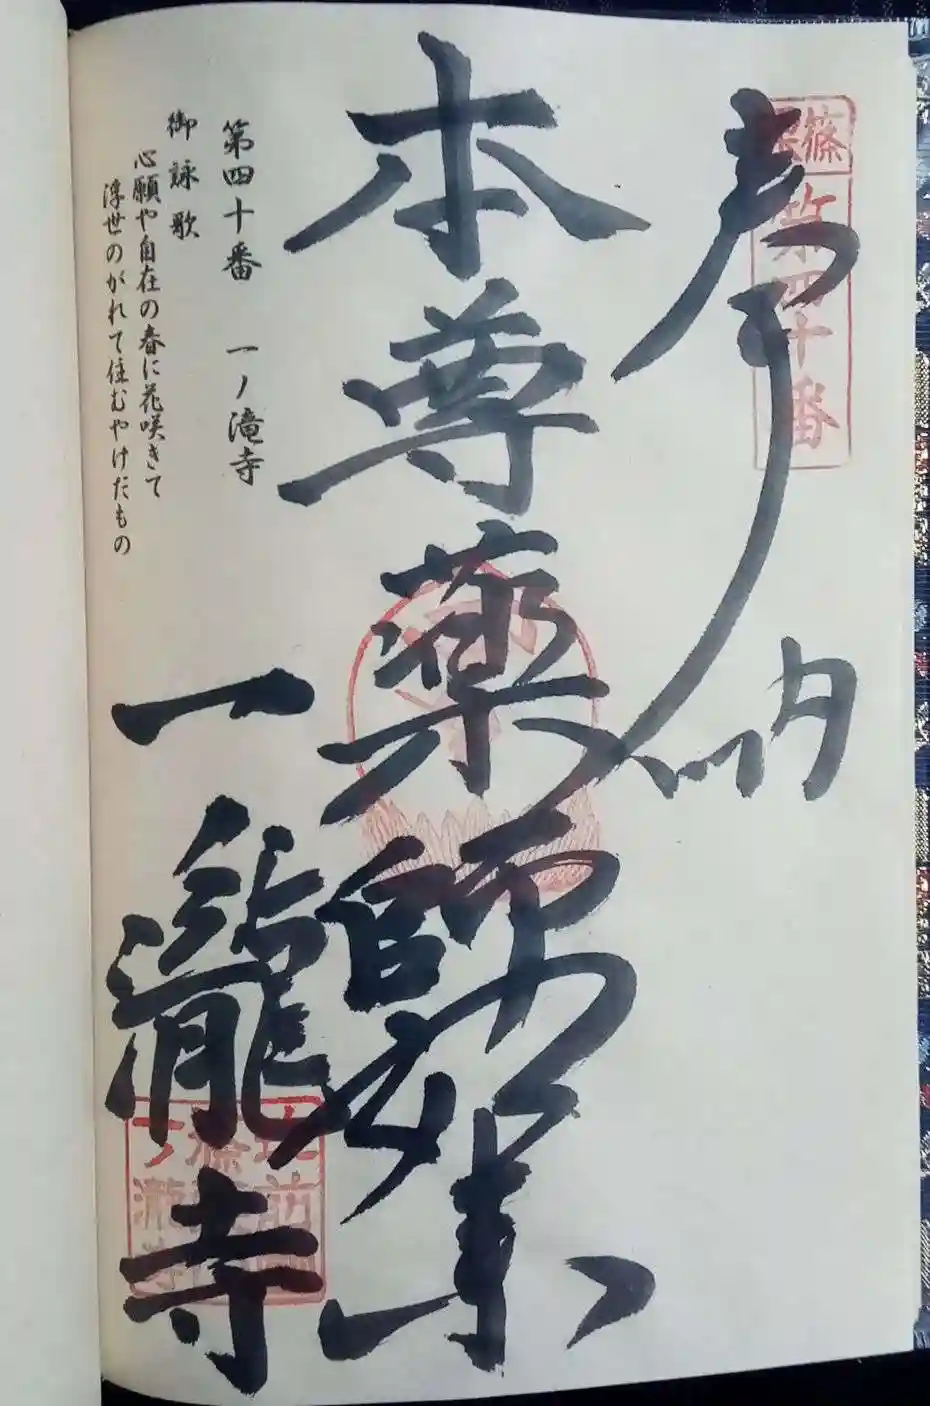 奉納
篠栗
第四十番
本尊薬師如来
一瀧寺
第四十番 一ノ滝寺
御詠歌
心願や自在の春に花咲きて
浮世のがれて住むやけだもの